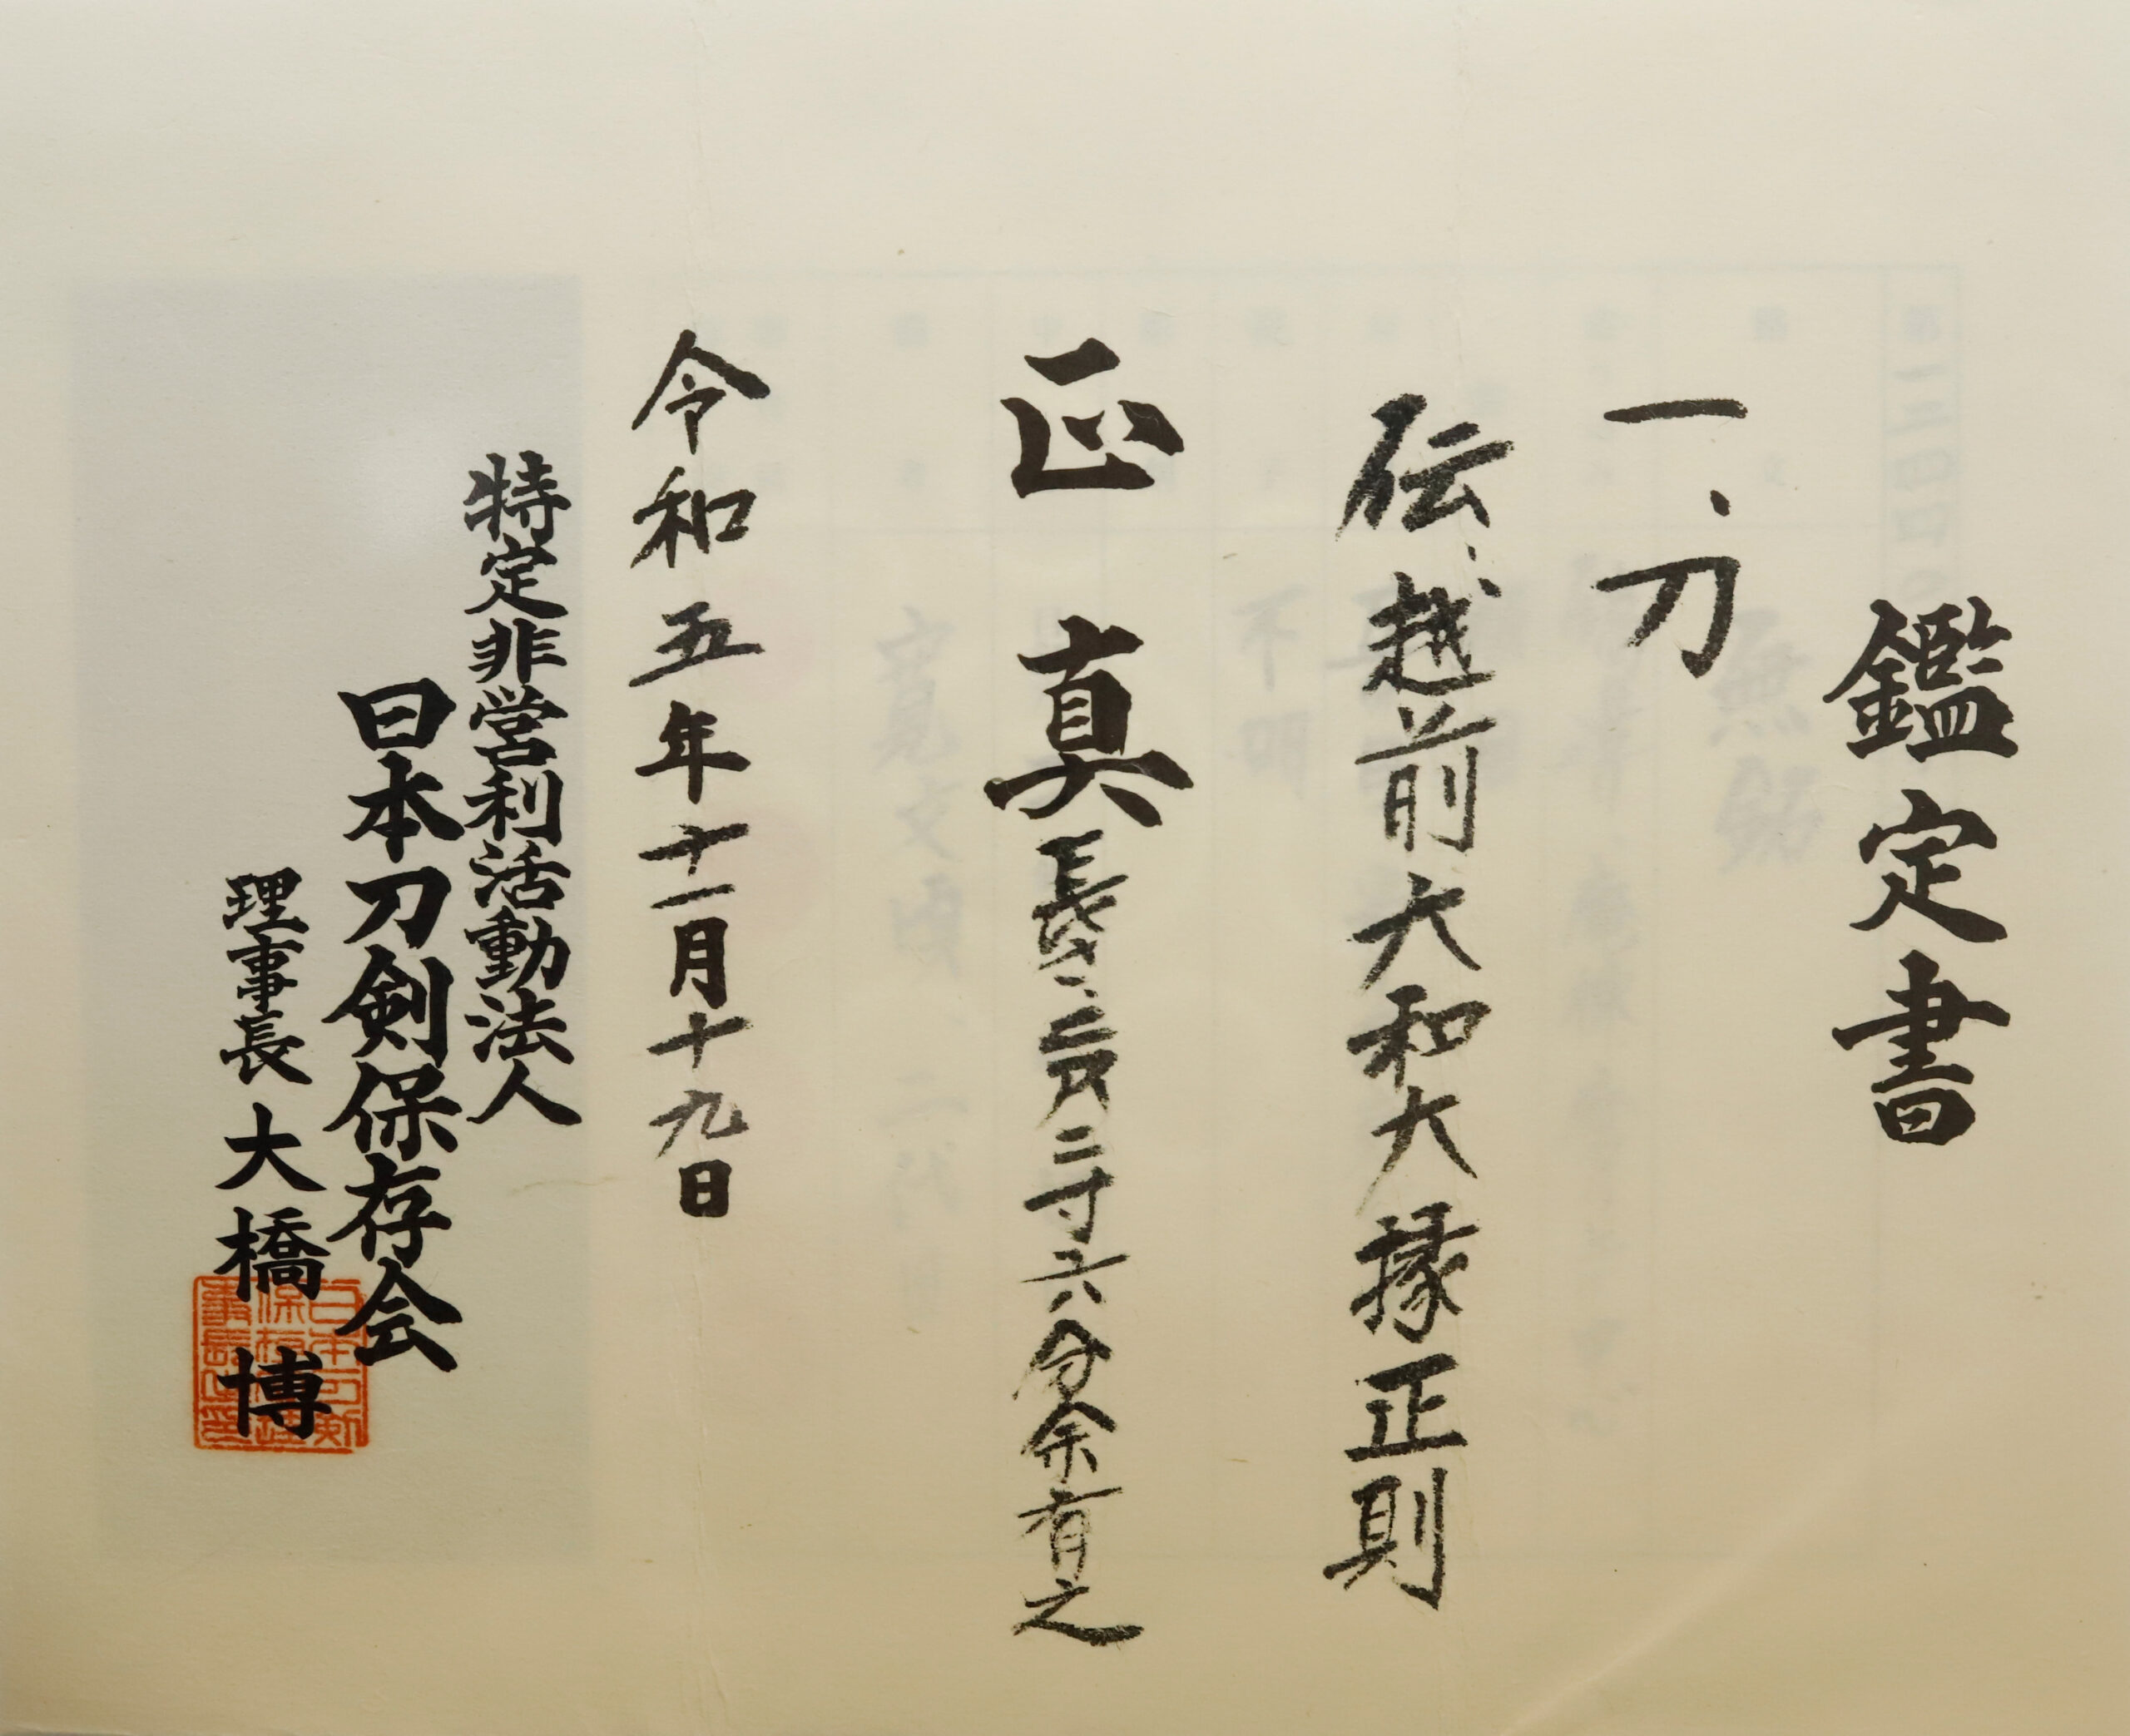 鑑定書
一、刀
伝、越前大和大掾正則
正真
長さ、弐尺二寸六分余有之
令和五年十一月十九日
特定非営利活動法人
日本刀剣保存会
理事長 大橋 博